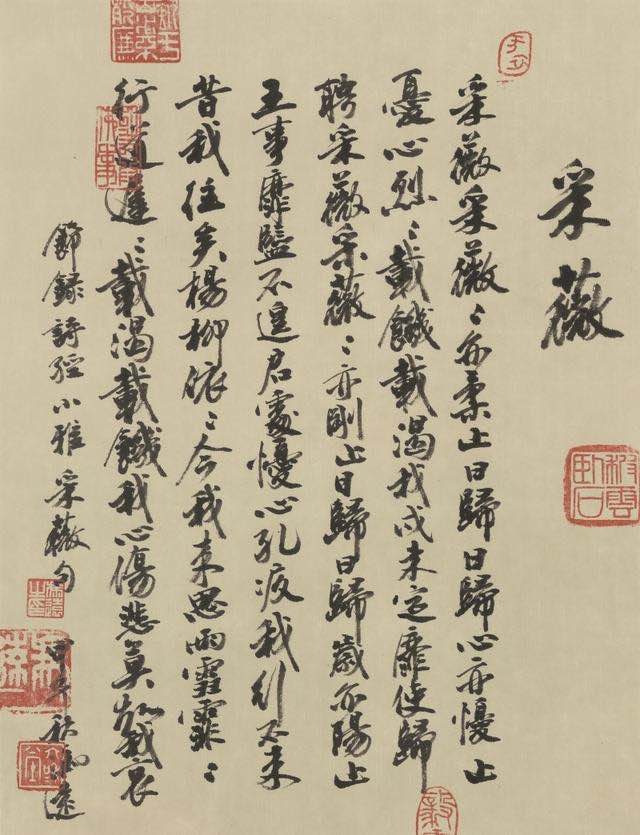 采薇
采薇采薇〻亦柔止曰歸曰歸心亦懮止
憂心烈〻載饑載渴我戍未定靡使歸
聘采薇采薇〻亦剛止曰歸曰歸歲亦陽止
王事靡盬不遑启處懮心孔疚我行不来
昔我往矣楊柳依〻今我来思雨雪霏〻
行道遲〻載渴載饑我心傷悲莫知我哀
節錄詩經小雅采薇句
甲午秋